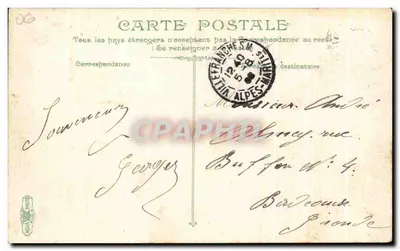 CARTE POSTALE
Tous les pays étrangers n'acceptent pas la Correspondance au recto
(Se renseigner
Correspondance
destinataire
VILLEFRANCHE S.M.
12 40
5 -8
08
ALPES-MARITIMES
CARTHAPHILA
Souvenir
Georges
Monsieur André
rue
Buffon No 4.
Bordeaux
Gironde